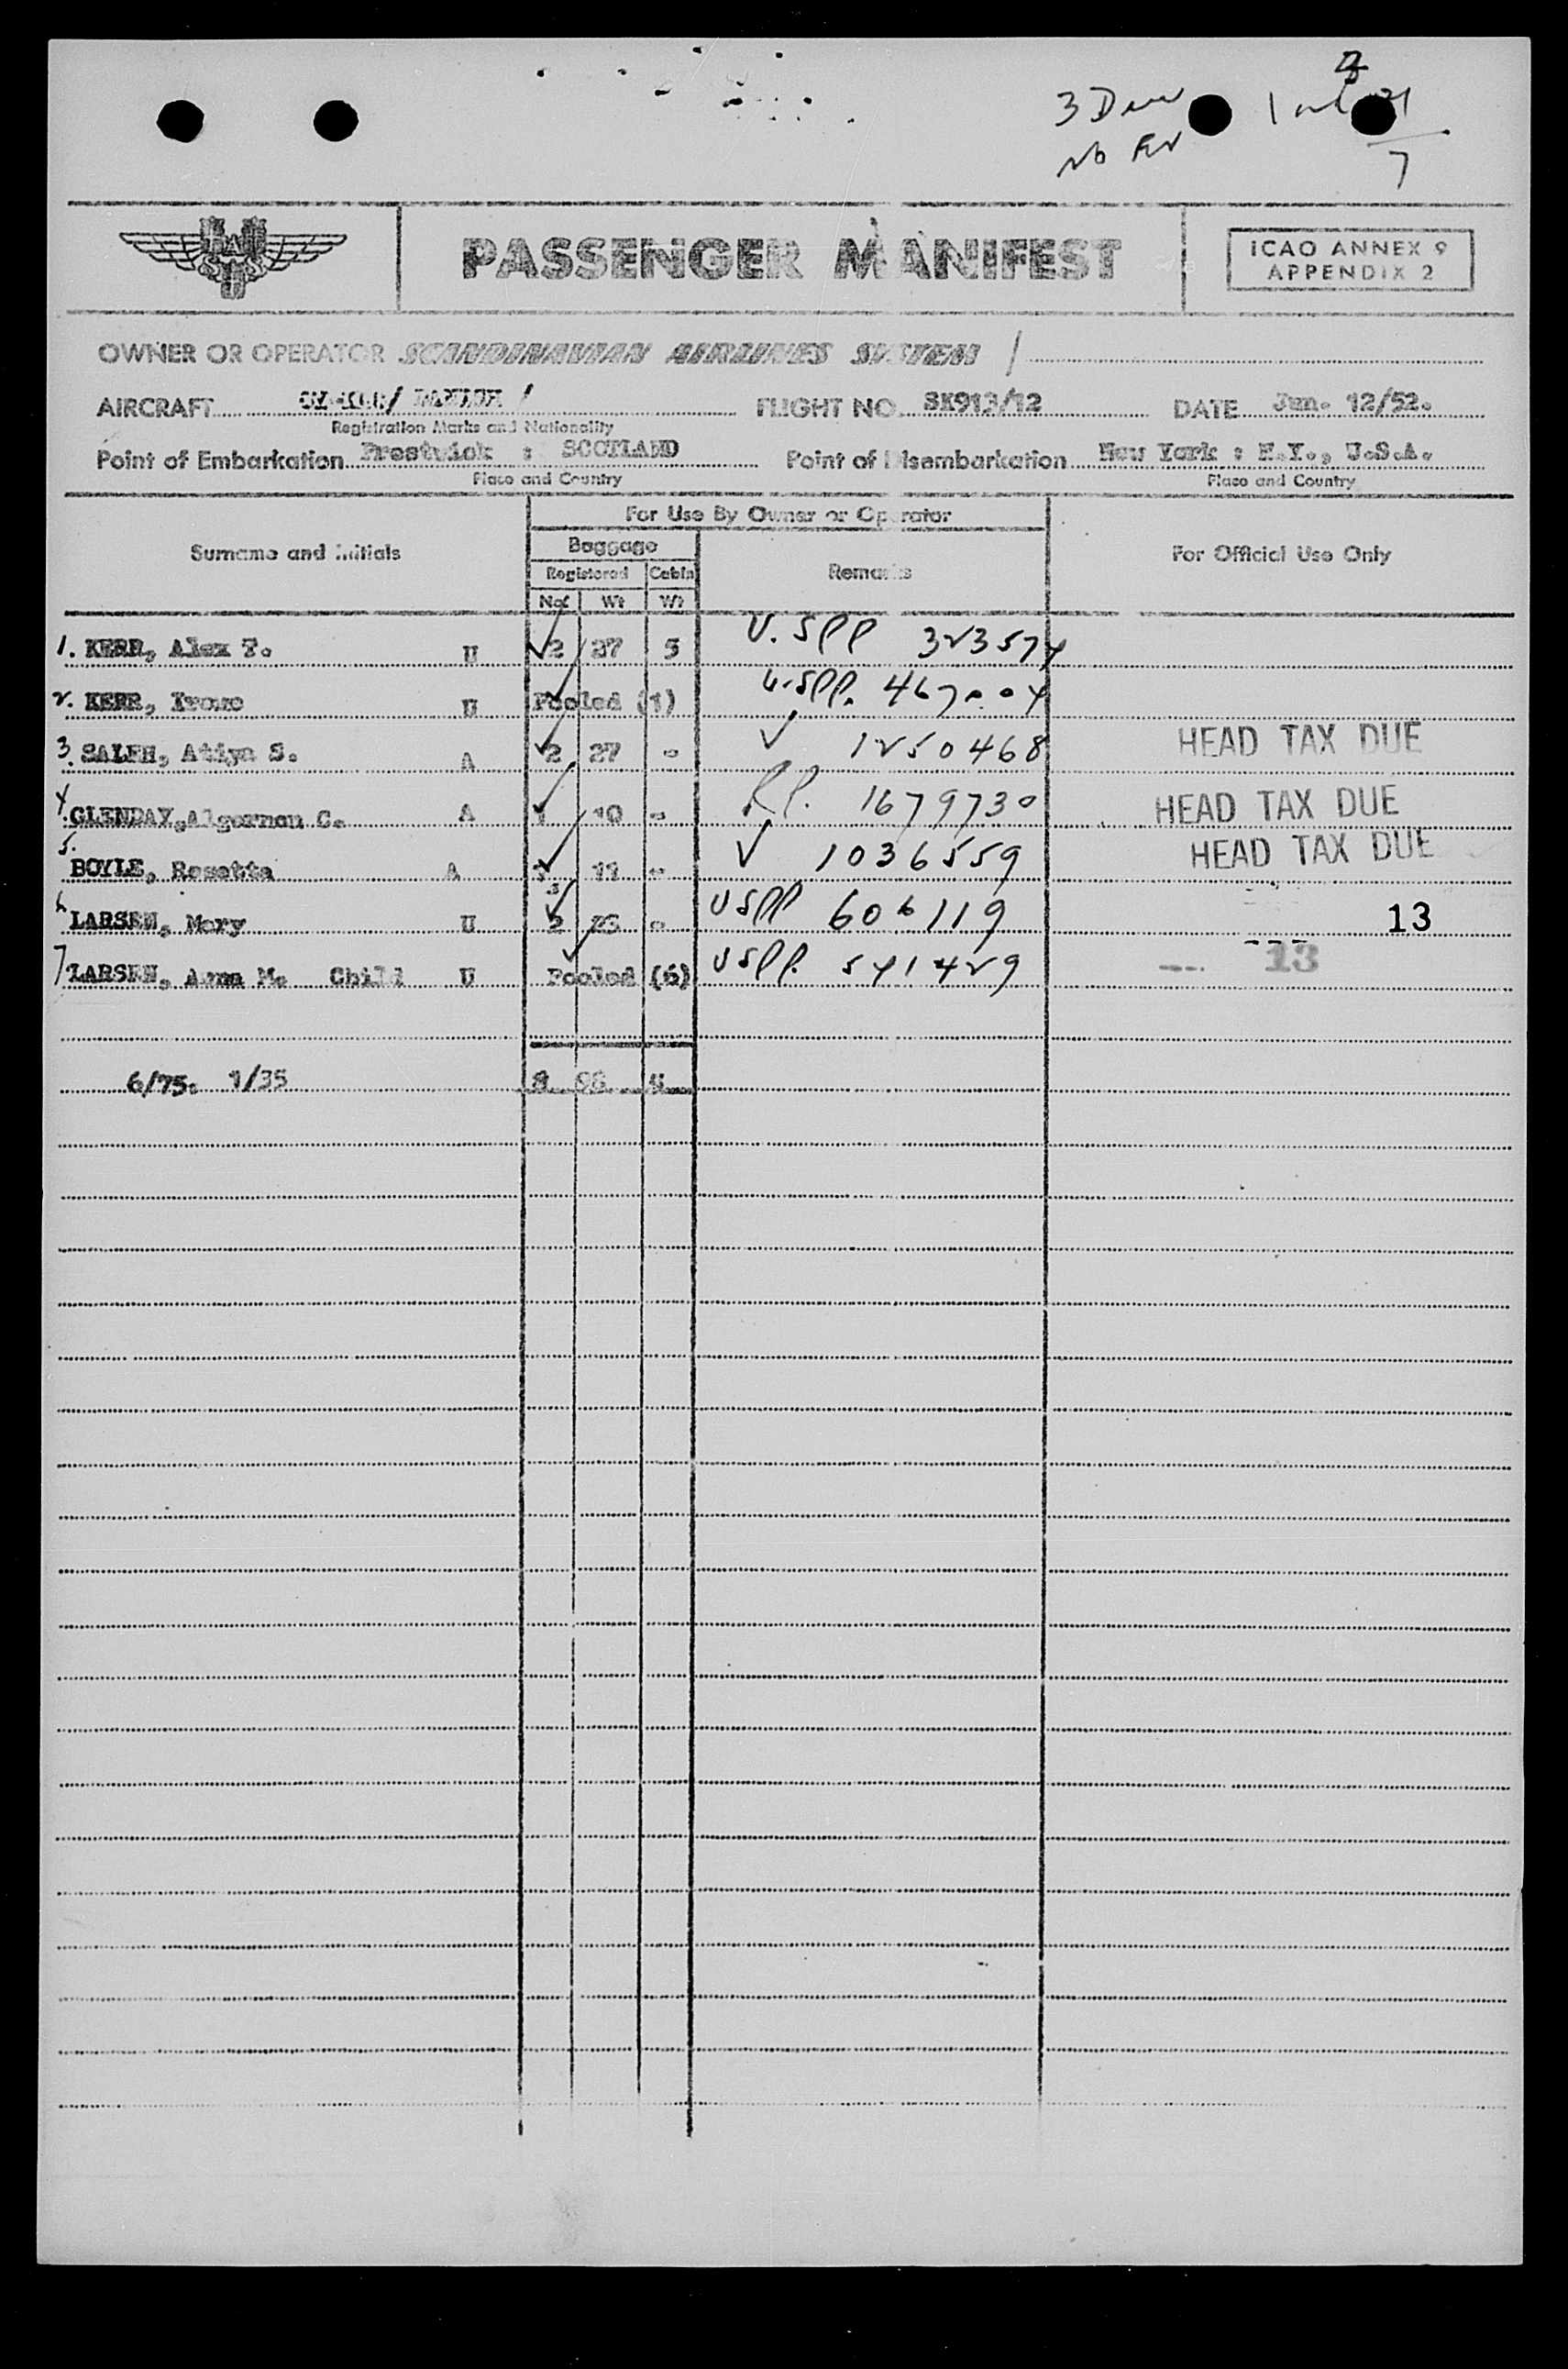 3 Dem 1
No Rev 7
PASSENGER MANIFEST
ICAO ANNEX 9
APPENDIX 2
OWNER OR OPERATOR SCANDINAVIAN AIRLINES SYSTEM /
AIRCRAFT / FLIGHT NO. SK913/12 DATE Jan. 12/52.
Registration Marks and Nationality
Point of Embarkation Prestwick : SCOTLAND Point of Disembarkation New York : N.Y., U.S.A.
Place and Country Place and Country
Surname and Initials For Use By Owner or Operator For Official Use Only
Baggage Remarks
Registered Cabin
No. Wt Wt
1. KERR, Alex F. U 2 27 5 U.SPP 323574
2. KERR, U Pooled (1) U.SPP. 467004
3. SALEH, Atiya S. A 2 27 - ✓ 1250468 HEAD TAX DUE
4. GLENDAY, Algernon C. A 1 10 - R.P. 1679730 HEAD TAX DUE
5. BOYLE, Rosetta A 1 11 - ✓ 1036559 HEAD TAX DUE
6 LARSEN, Mary U 2 23 - USPP 606119 13
7 LARSEN, Anna M. Child U Pooled (6) USPP. 541429 13
6/75. 1/35 8 98